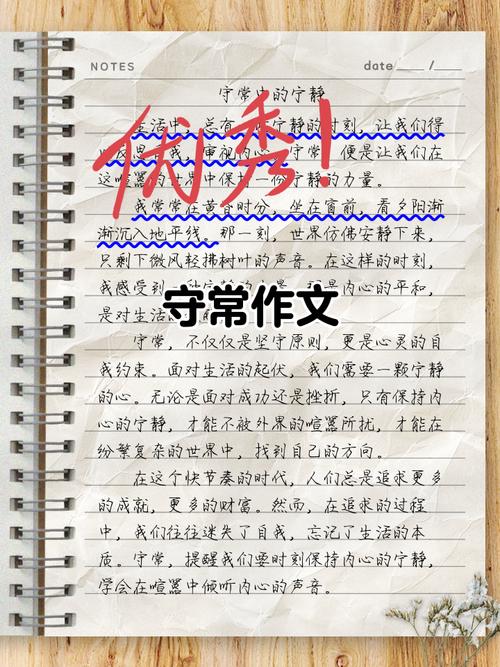 NOTES
date /
守常中的宁静
生活中，总有宁静的时刻，让我们得
我，审视内心。守常，便是让我们在
这喧嚣的世界中保持一份宁静的力量。
我常常在黄昏时分，坐在窗前，看夕阳渐
渐沉入地平线。那一刻，世界仿佛安静下来，
只剩下微风轻拂树叶的声音。在这样的时刻，
我感受到是内心的平和，
是对生活的
守常，不仅仅是坚守原则，更是心灵的自
我约束。面对生活的起伏，我们需要一颗宁静
的心。无论是面对成功还是挫折，只有保持内
心的宁静，才能不被外界的喧嚣所扰，才能在
纷繁复杂的世界中，找到自己的方向。
在这个快节奏的时代，人们总是追求更多
的成就，更多的财富。然而，在追求的过程
中，我们往往迷失了自我，忘记了生活的本
质。守常，提醒我们要时刻保持内心的宁静，
学会在喧嚣中倾听内心的声音。
优秀！
守常作文